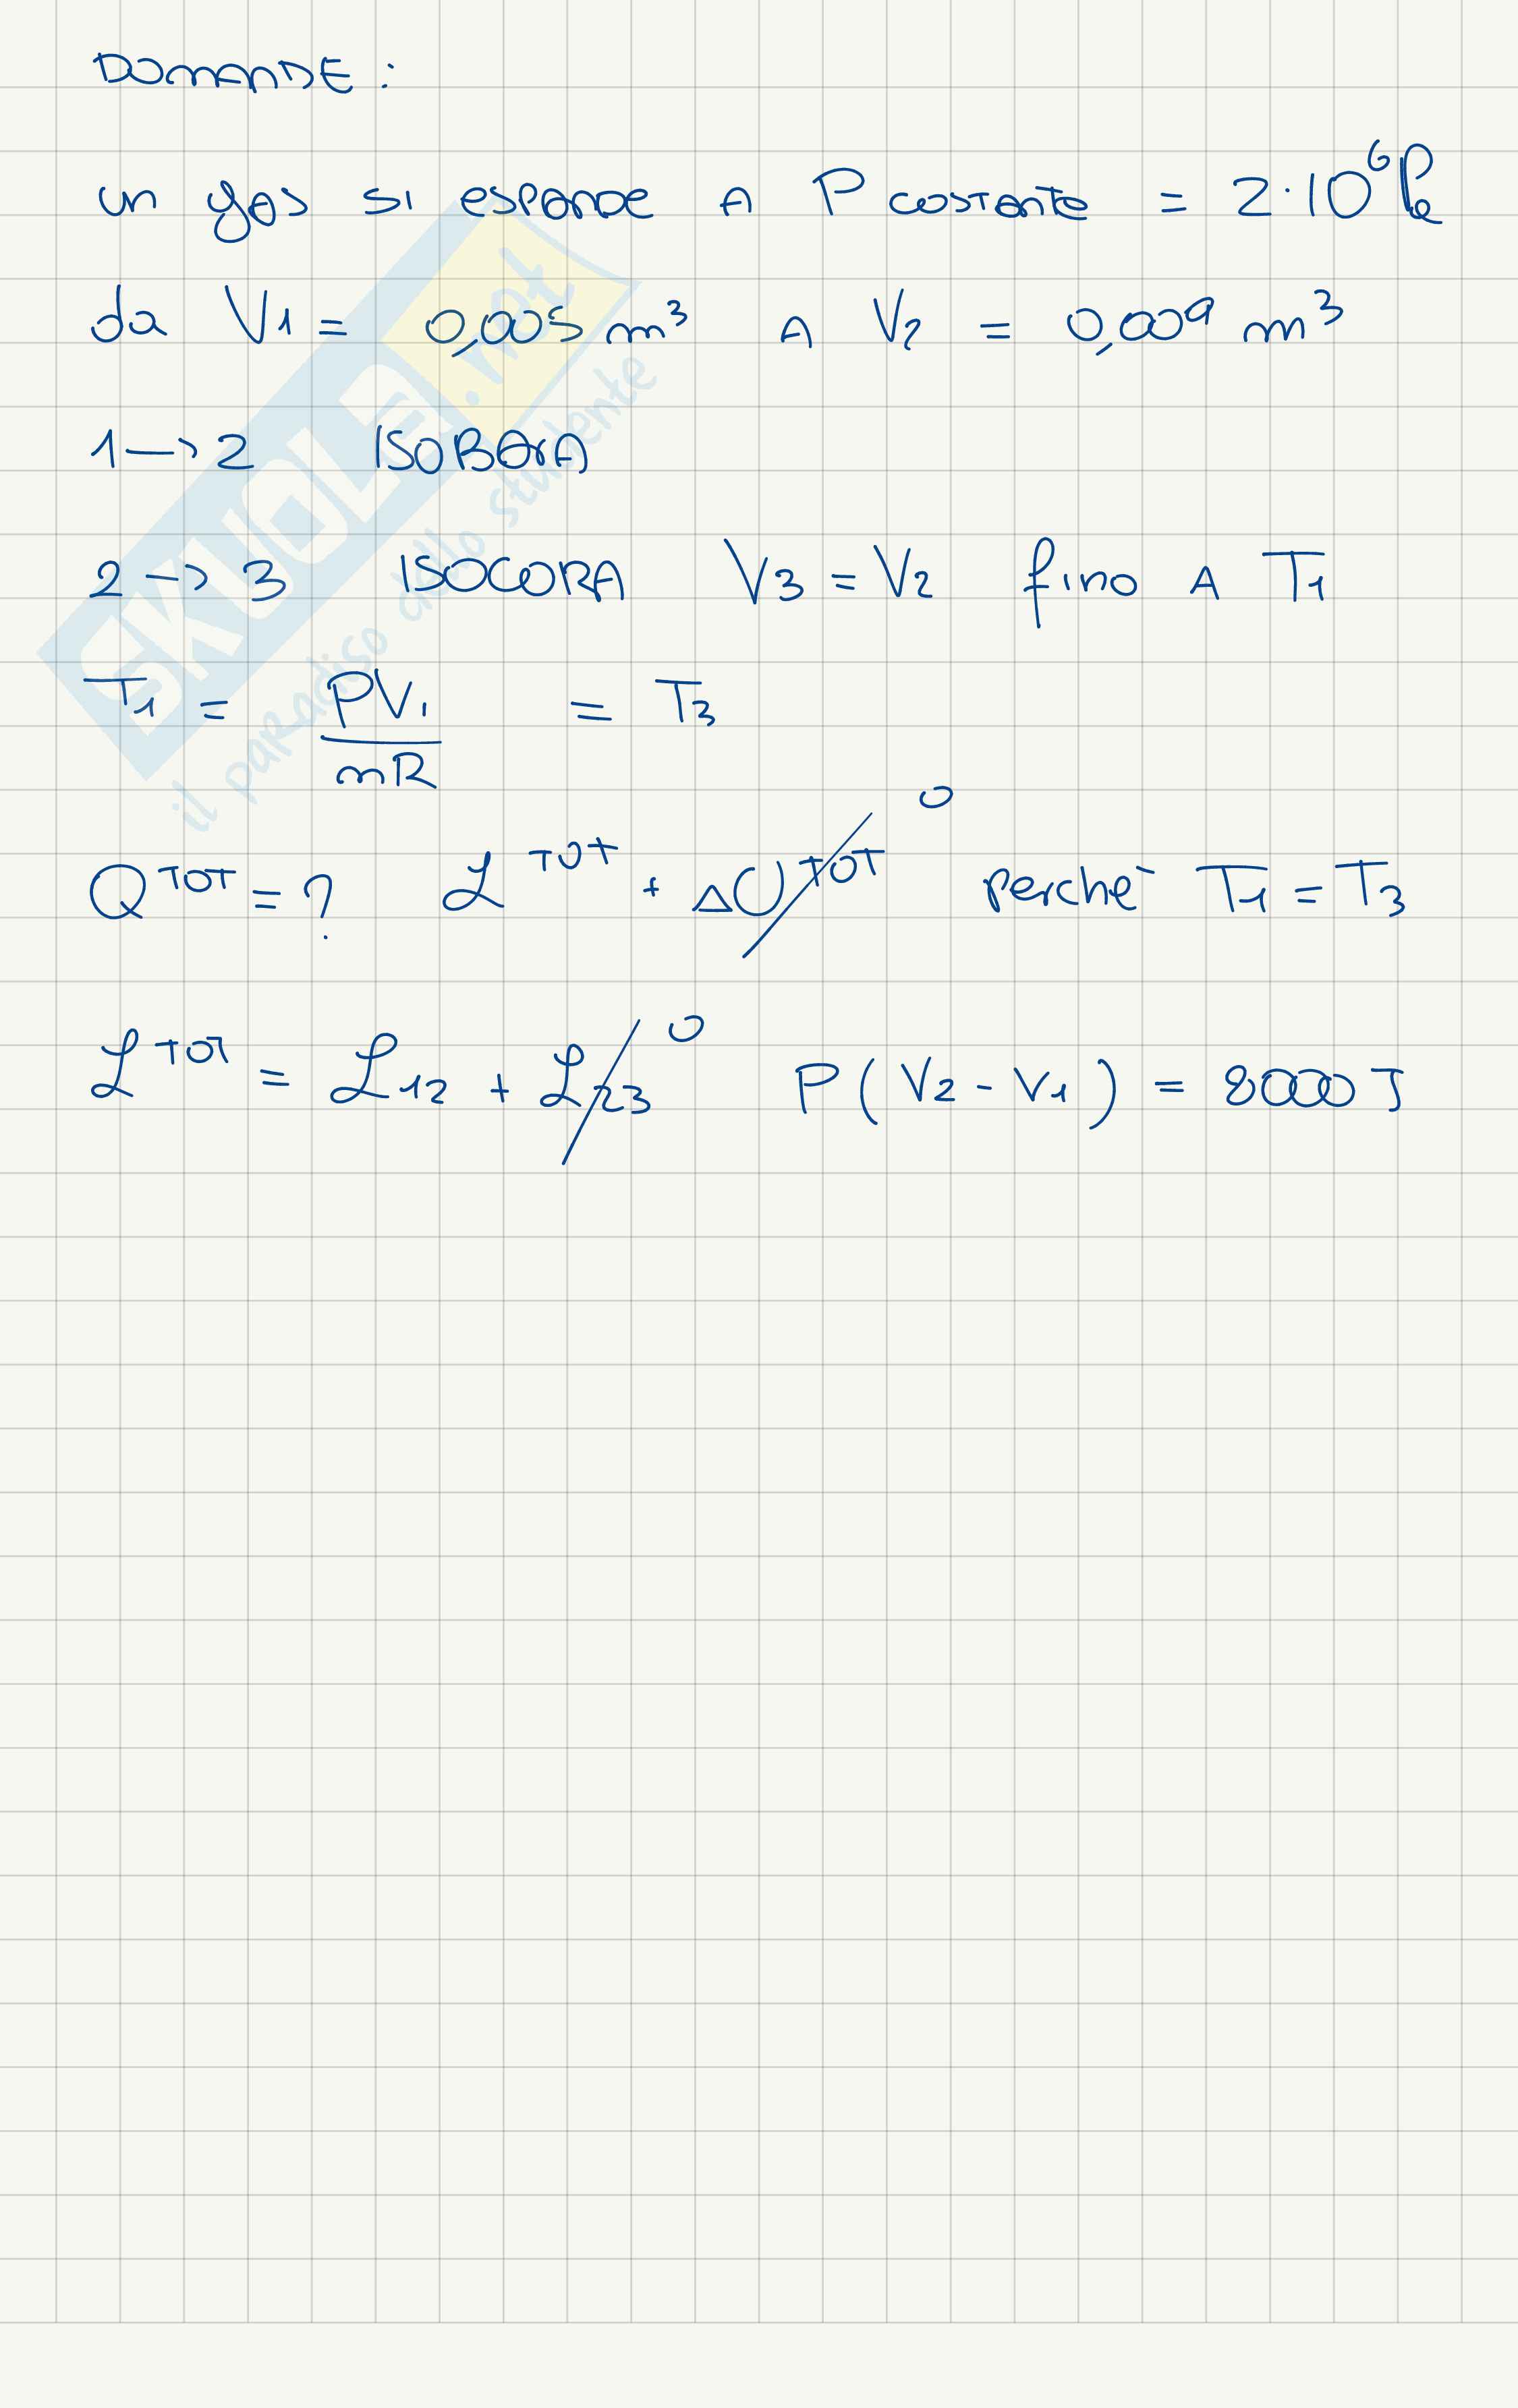 DOMANDE:
un gas si espande A P costante = 2·10⁶Pa
da V₁ = 0,005 m³ A V₂ = 0,009 m³
1→2 ISOBARA
2→3 ISOCORA V₃ = V₂ fino A T₁
T₁ = PV₁/nR = T₃
Q^TOT = ? L^TOT + ΔU^TOT 0 perché T₁ = T₃
L^TOT = L₁₂ + L₂₃ 0 P(V₂ - V₁) = 8000 J
SKUOLA.net
il paradiso dello studente